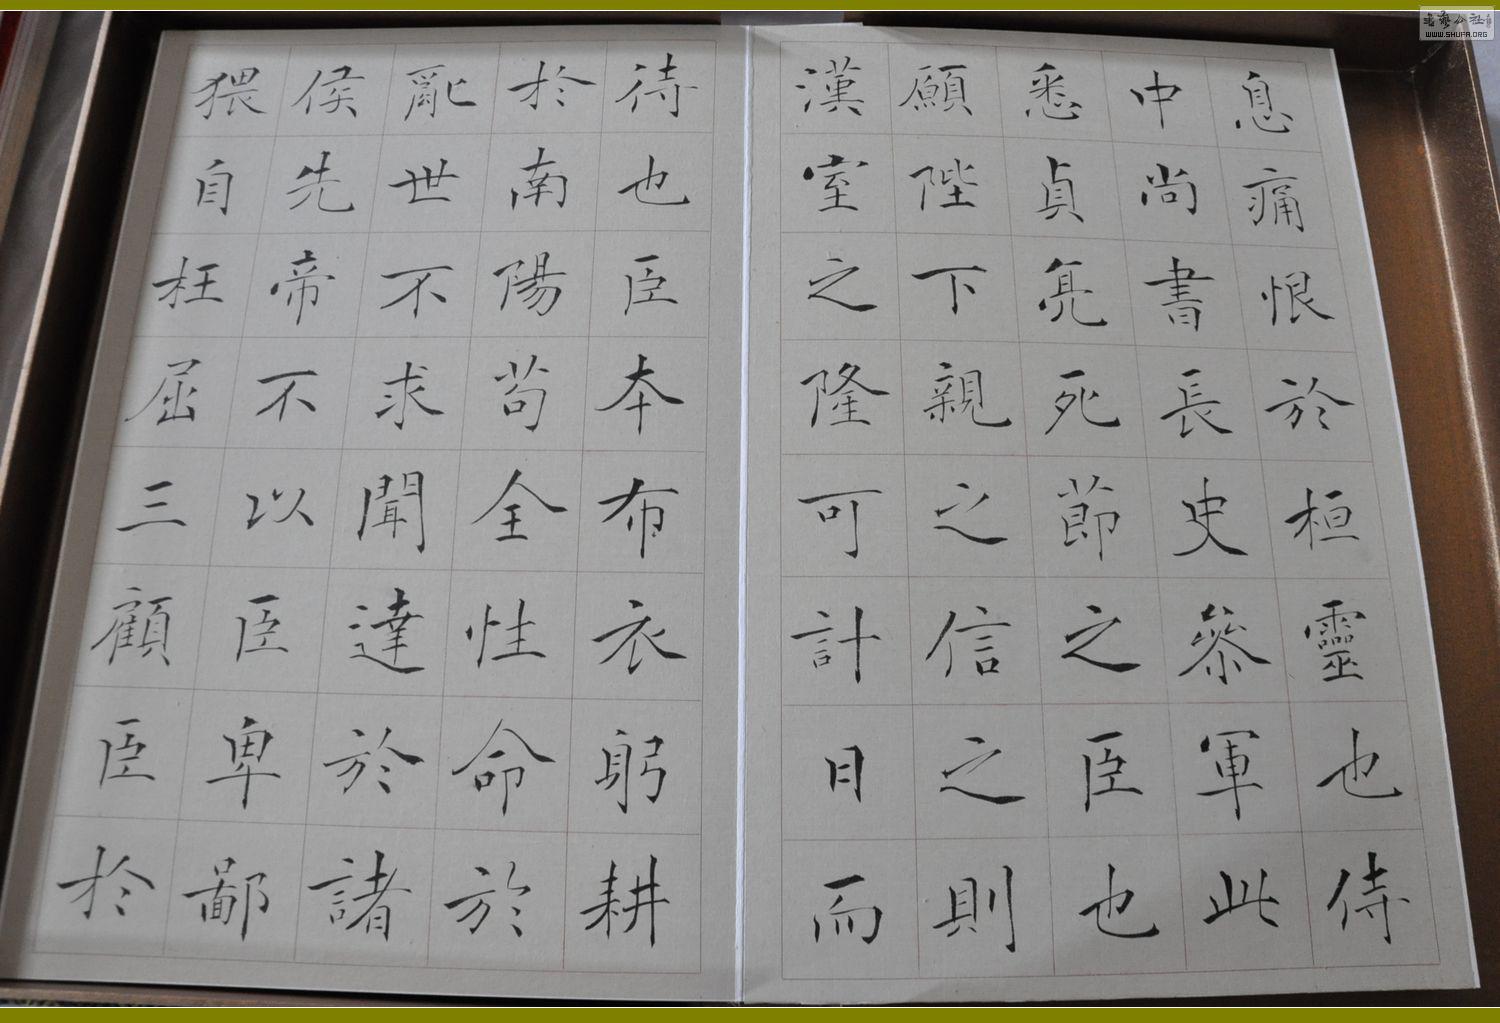 息痛恨於桓靈也侍
中尚書長史參軍此
悉貞亮死節之臣也
願陛下親之信之則
漢室之隆可計日而
待也臣本布衣躬耕
於南陽苟全性命於
亂世不求聞達於諸
侯先帝不以臣卑鄙
猥自枉屈三顧臣於
書藝公社
WWW.SHUFA.ORG